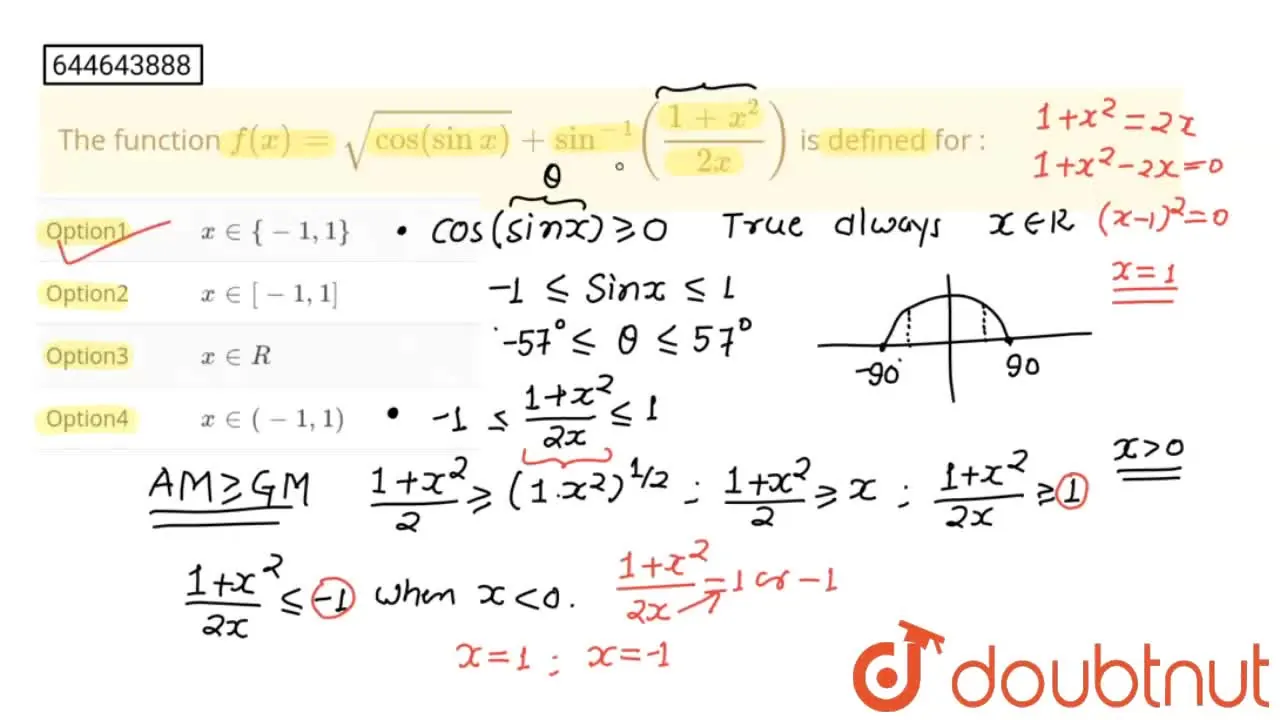 644643888
The function f(x) = √cos(sin x) + sin⁻¹((1 + x²)/(2x)) is defined for :
1+x²=2x
1+x²-2x=0
(x-1)²=0
x=1
θ
Option1 x ∈ {-1, 1}
• cos(sinx) ≥ 0 True always x∈R
Option2 x ∈ [-1, 1]
-1 ≤ Sinx ≤ 1
Option3 x ∈ R
-57° ≤ θ ≤ 57°
-90° 90
Option4 x ∈ (-1, 1)
• -1 ≤ (1+x²)/(2x) ≤ 1
x>0
AM≥GM (1+x²)/2 ≥ (1·x²)^1/2 : (1+x²)/2 ≥ x : (1+x²)/(2x) ≥ 1
(1+x²)/(2x) ≤ -1 when x<0. (1+x²)/(2x) = 1 or -1
x=1 ; x=-1
doubtnut